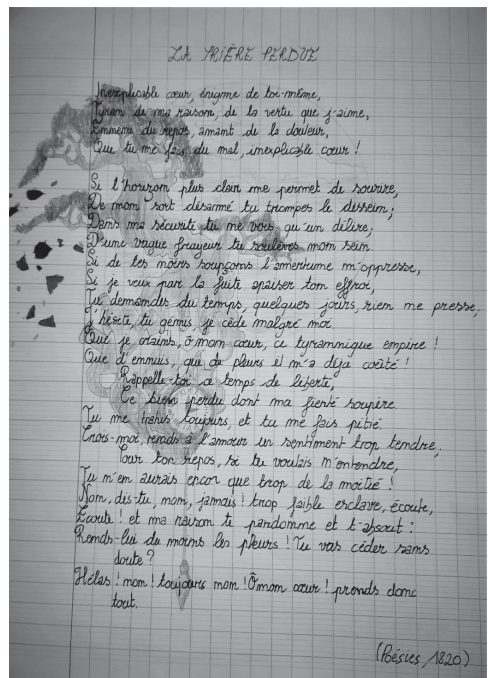 LA PRIÈRE PERDUE
Inexplicable cœur, énigme de toi-même,
Tyran de ma raison, de la vertu que j'aime,
Ennemi du repos, amant de la douleur,
Que tu me fais du mal, inexplicable cœur !
Si l'horizon plus clair me permet de sourire,
De mon sort désarmé tu trompes le dessein ;
Dans ma sécurité tu ne vois qu'un délire ;
D'une vague frayeur tu soulèves mon sein.
Si de tes noirs soupçons l'amertume m'oppresse,
Si je veux par la fuite apaiser ton effroi,
Tu demandes du temps, quelques jours, rien ne presse ;
J'hésite, tu gémis, je cède malgré moi.
Que je crains, ô mon cœur, ce tyrannique empire !
Que d'ennuis, que de pleurs il m'a déjà coûté !
Rappelle-toi ce temps de liberté,
Ce bien perdu dont ma fierté soupire.
Tu me trahis toujours, et tu me fais pitié.
Crois-moi, rends à l'amour un sentiment trop tendre ;
Pour ton repos, si tu voulais m'entendre,
Tu m'en aurais encor que trop de la moitié !
Non, dis-tu, non, jamais ! trop faible esclave, écoute,
Écoute ! et ma raison te pardonne et t'absout :
Rends-lui du moins les pleurs ! Tu vas céder sans
doute ?
Hélas ! non ! toujours non ! Ô mon cœur ! prends donc
tout.
(Poésies, 1820)